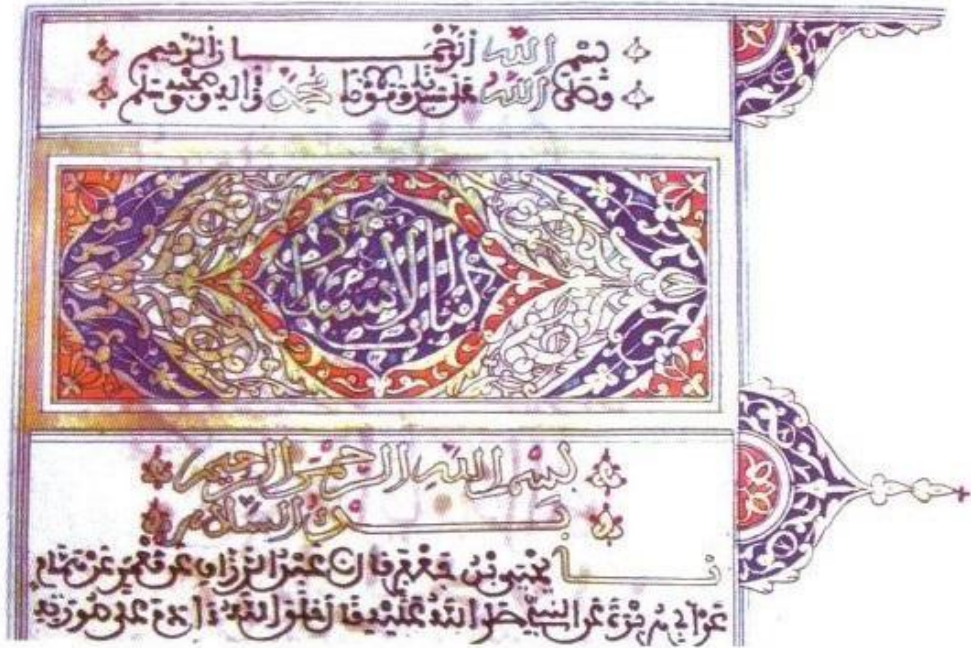 بسم الله الرحمان الرحيم
وصلى الله على سيدنا ومولانا محمد وآله وصحبه وسلم
كتاب الاستيذان
بسم الله الرحمن الرحيم
بدء السلام
نا يحيى بن جعفر قال نا عبد الرزاق عن معمر عن همام
عن أبي هريرة عن النبي صلى الله عليه قال خلق الله آدم على صورته